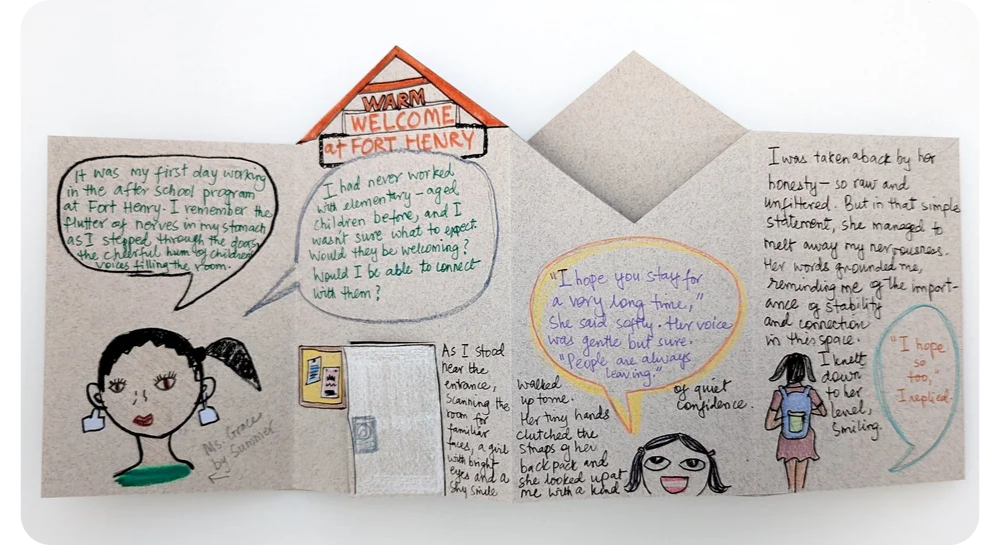 It was my first day working
in the after school program
at Fort Henry. I remember the
flutter of nerves in my stomach
as I stepped through the doors,
the cheerful hum of children
voices filling the room.
Ms. Grace
by Summer
WARM
WELCOME
at FORT HENRY
I had never worked
with elementary-aged
children before, and I
wasn't sure what to expect.
Would they be welcoming?
Would I be able to connect
with them?
As I stood
near the
entrance,
scanning the
room for
familiar
faces, a girl
with bright
eyes and a
shy smile
walked
up to me.
Her tiny hands
clutched the
straps of her
backpack and
she looked up at
me with a kind
of quiet
confidence.
"I hope you stay for
a very long time,"
She said softly. Her voice
was gentle but sure.
"People are always
leaving."
I was taken aback by her
honesty — so raw and
unfiltered. But in that simple
statement, she managed to
melt away my nervousness.
Her words grounded me,
reminding me of the import-
ance of stability
and connection
in this space.
I knelt
down
to her
level,
Smiling.
"I hope
so
too,"
I replied.